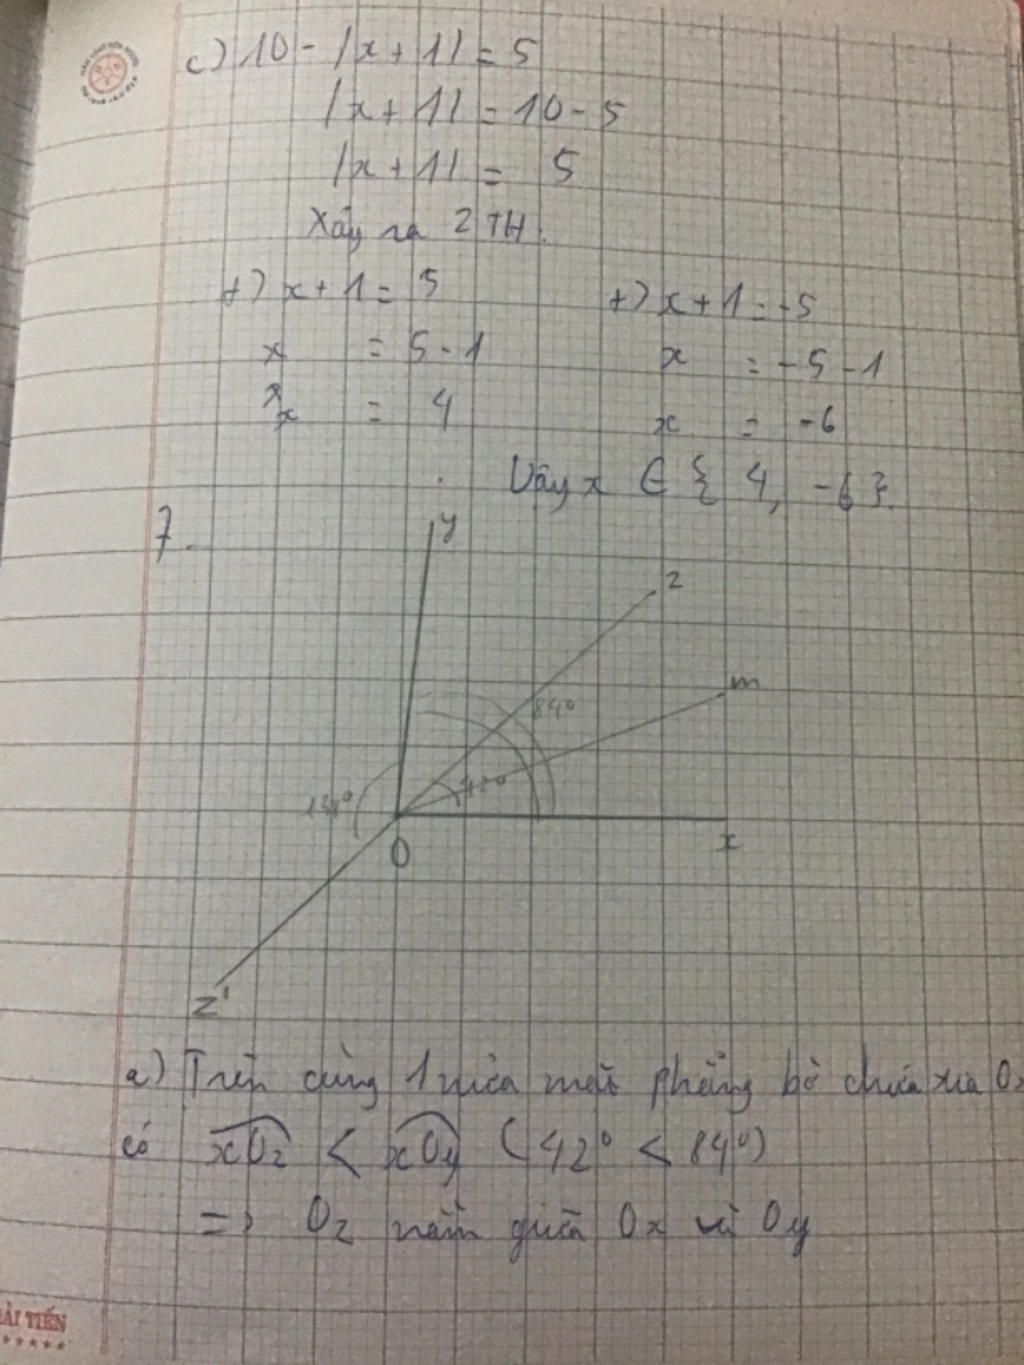 c) 10 - |x + 1| = 5
|x + 1| = 10 - 5
|x + 1| = 5
Xảy ra 2 TH.
+) x + 1 = 5 +) x + 1 = -5
x = 5 - 1 x = -5 - 1
x = 4 x = -6
Vậy x ∈ { 4, -6 }.
7.
y
z
m
84°
42°
O
x
z'
a) Trên cùng 1 nửa mặt phẳng bờ chứa tia Ox
có xOz < xOy (42° < 84°)
=> Oz nằm giữa Ox và Oy
ẢI TIẾN